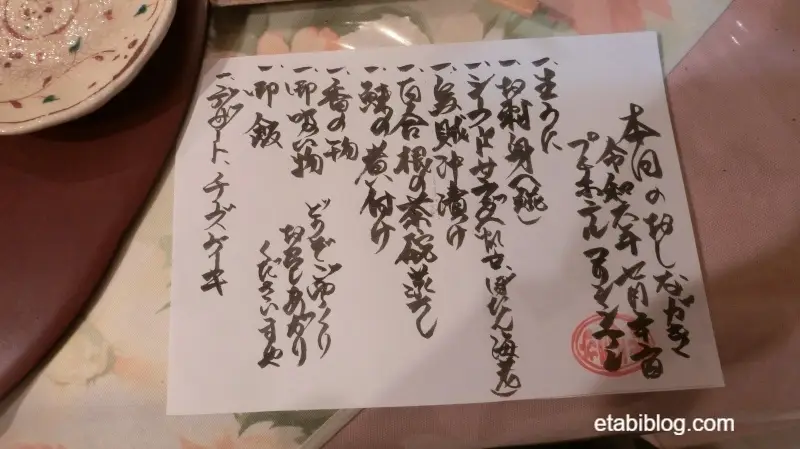 本日のおしながき
令和六年 七月
プチホテル マリンマミ
一、生うに
一、お刺身(鮑)
一、シーフードサラダ(ほたて、ぼたん海老)
一、烏賊沖漬け
一、百合根の茶碗蒸し
一、鰊の煮付け
一、香の物
一、御吸い物
一、御飯
一、デザート、チーズケーキ
どうぞごゆっくり
お召しあがり
くださいませ
etabiblog.com